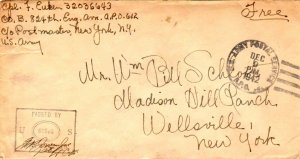 Cpl. F. Euken 32036643
Co. B. 824th. Eng. Avn. A.P.O. 612
c/o Postmaster, New York, N.Y.
U.S. Army
Free
U.S. ARMY POSTAL SERVICE
DEC
6
1942
A.P.O.
Mr. Wm Bill
Madison Hill Ranch
Wellsville,
New York
PASSED BY
U S